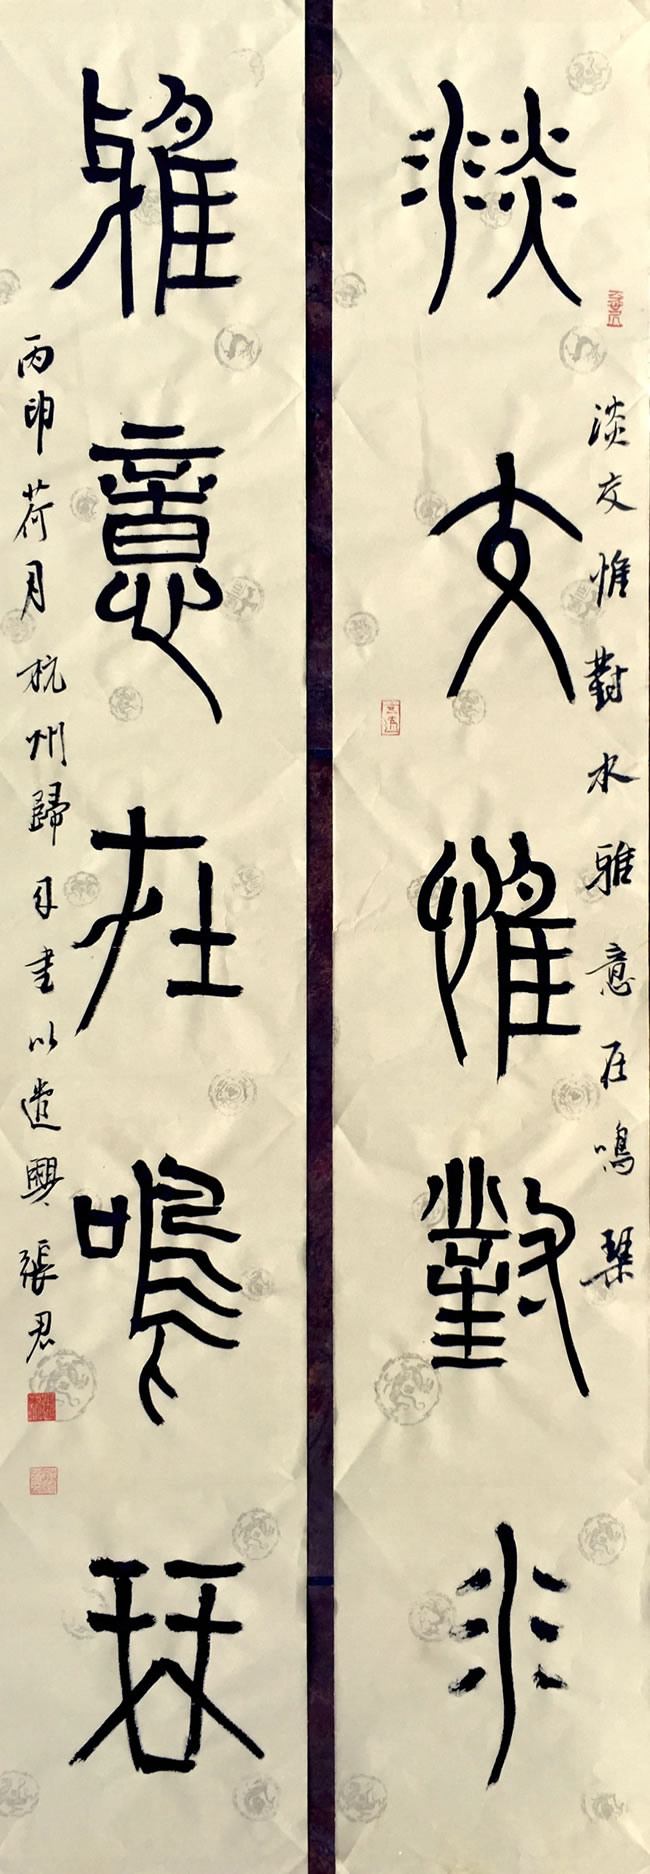 淡交惟對水
淡交惟對水雅意在鳴琴
雅意在鳴琴
丙申荷月杭州歸來書以遣興張君